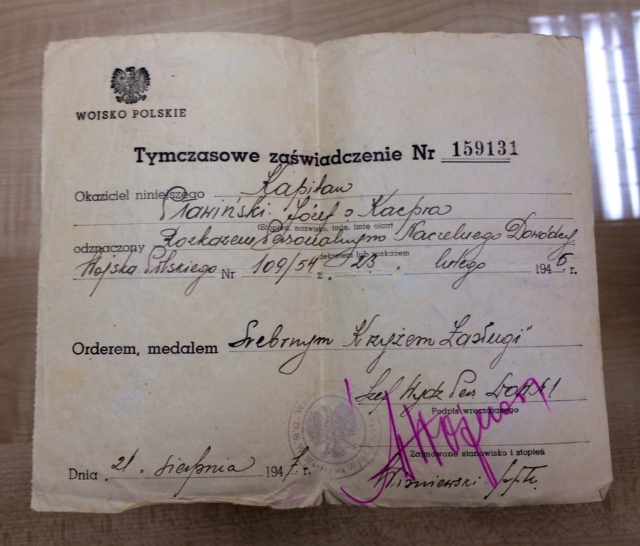 WOJSKO POLSKIE
Tymczasowe zaświadczenie Nr 159131
Okaziciel niniejszego Kapitan
Józef s Kacpra
(Stopień, nazwisko, imię, imię ojca)
odznaczony Rozkazem Personalnym Naczelnego Dowódcy
dekretem lub rozkazem
Wojska Polskiego Nr 109/54 z. 23. lutego 1946 r.
Orderem, medalem „Srebrnym Krzyżem Zasługi"
Szef Wydz Pers
Podpis wręczającego
Zajmowane stanowisko i stopień
Dnia 21. sierpnia 1947. r.
Wiśniewski